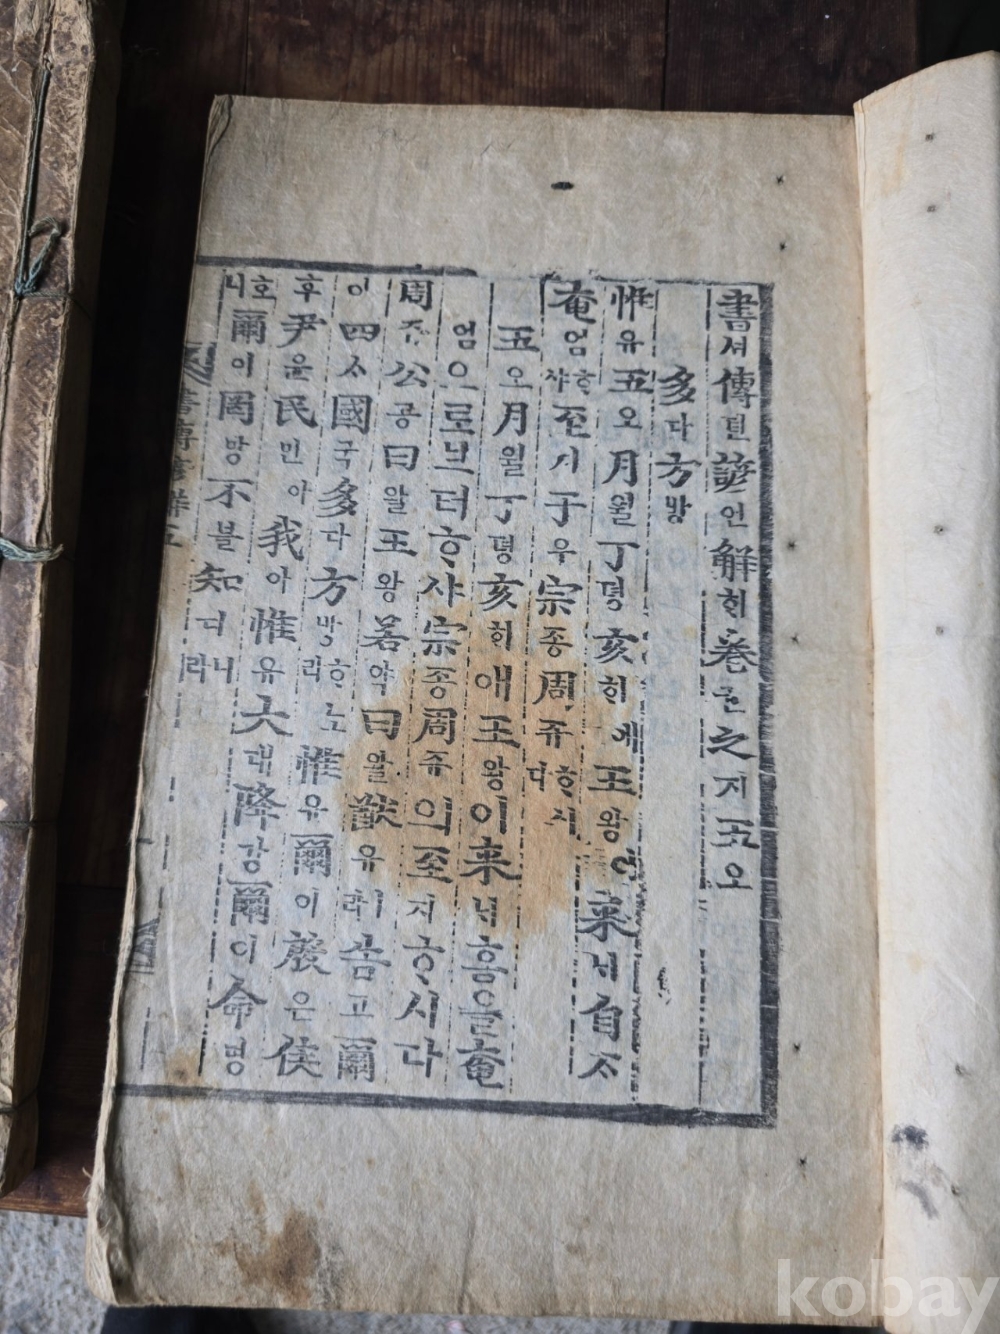 書셔傳뎐諺언解ᄒᆡ卷권之지五오
多다方방
惟유五오月월丁뎡亥ᄒᆡ에王왕이來ᄅᆡ自ᄌᆞ
奄엄ᄒᆞ샤至지于우宗종周쥬ᄒᆞ시다
五오月월丁뎡亥ᄒᆡ애王왕이來ᄅᆡ홈을奄
엄으로브터ᄒᆞ샤宗종周쥬의至지ᄒᆞ시다
周쥬公공曰왈王왕若약曰왈猷유ㅣ라誥고爾
이四ᄉᆞ國국多다方방ᄒᆞ노라惟유爾이殷은侯
후尹윤民민아我아惟유大대降강爾이命명
호니爾이罔망不블知디니라
書傳諺解五
kobay